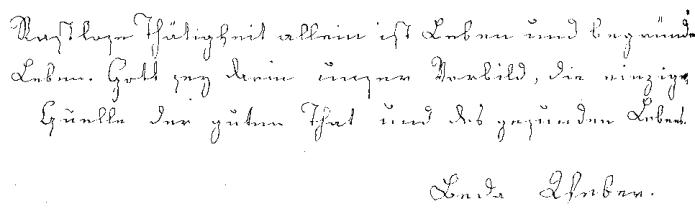 Rastlose Thätigkeit allein ist Leben und begründe
Leben. Gott sey darin unser Vorbild, die einzige
Quelle der guten That und des gesunden Lebens.
Beda Weber.